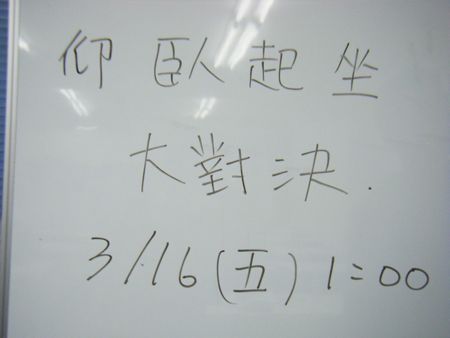 仰臥起坐
大對決.
3/16(五) 1:00